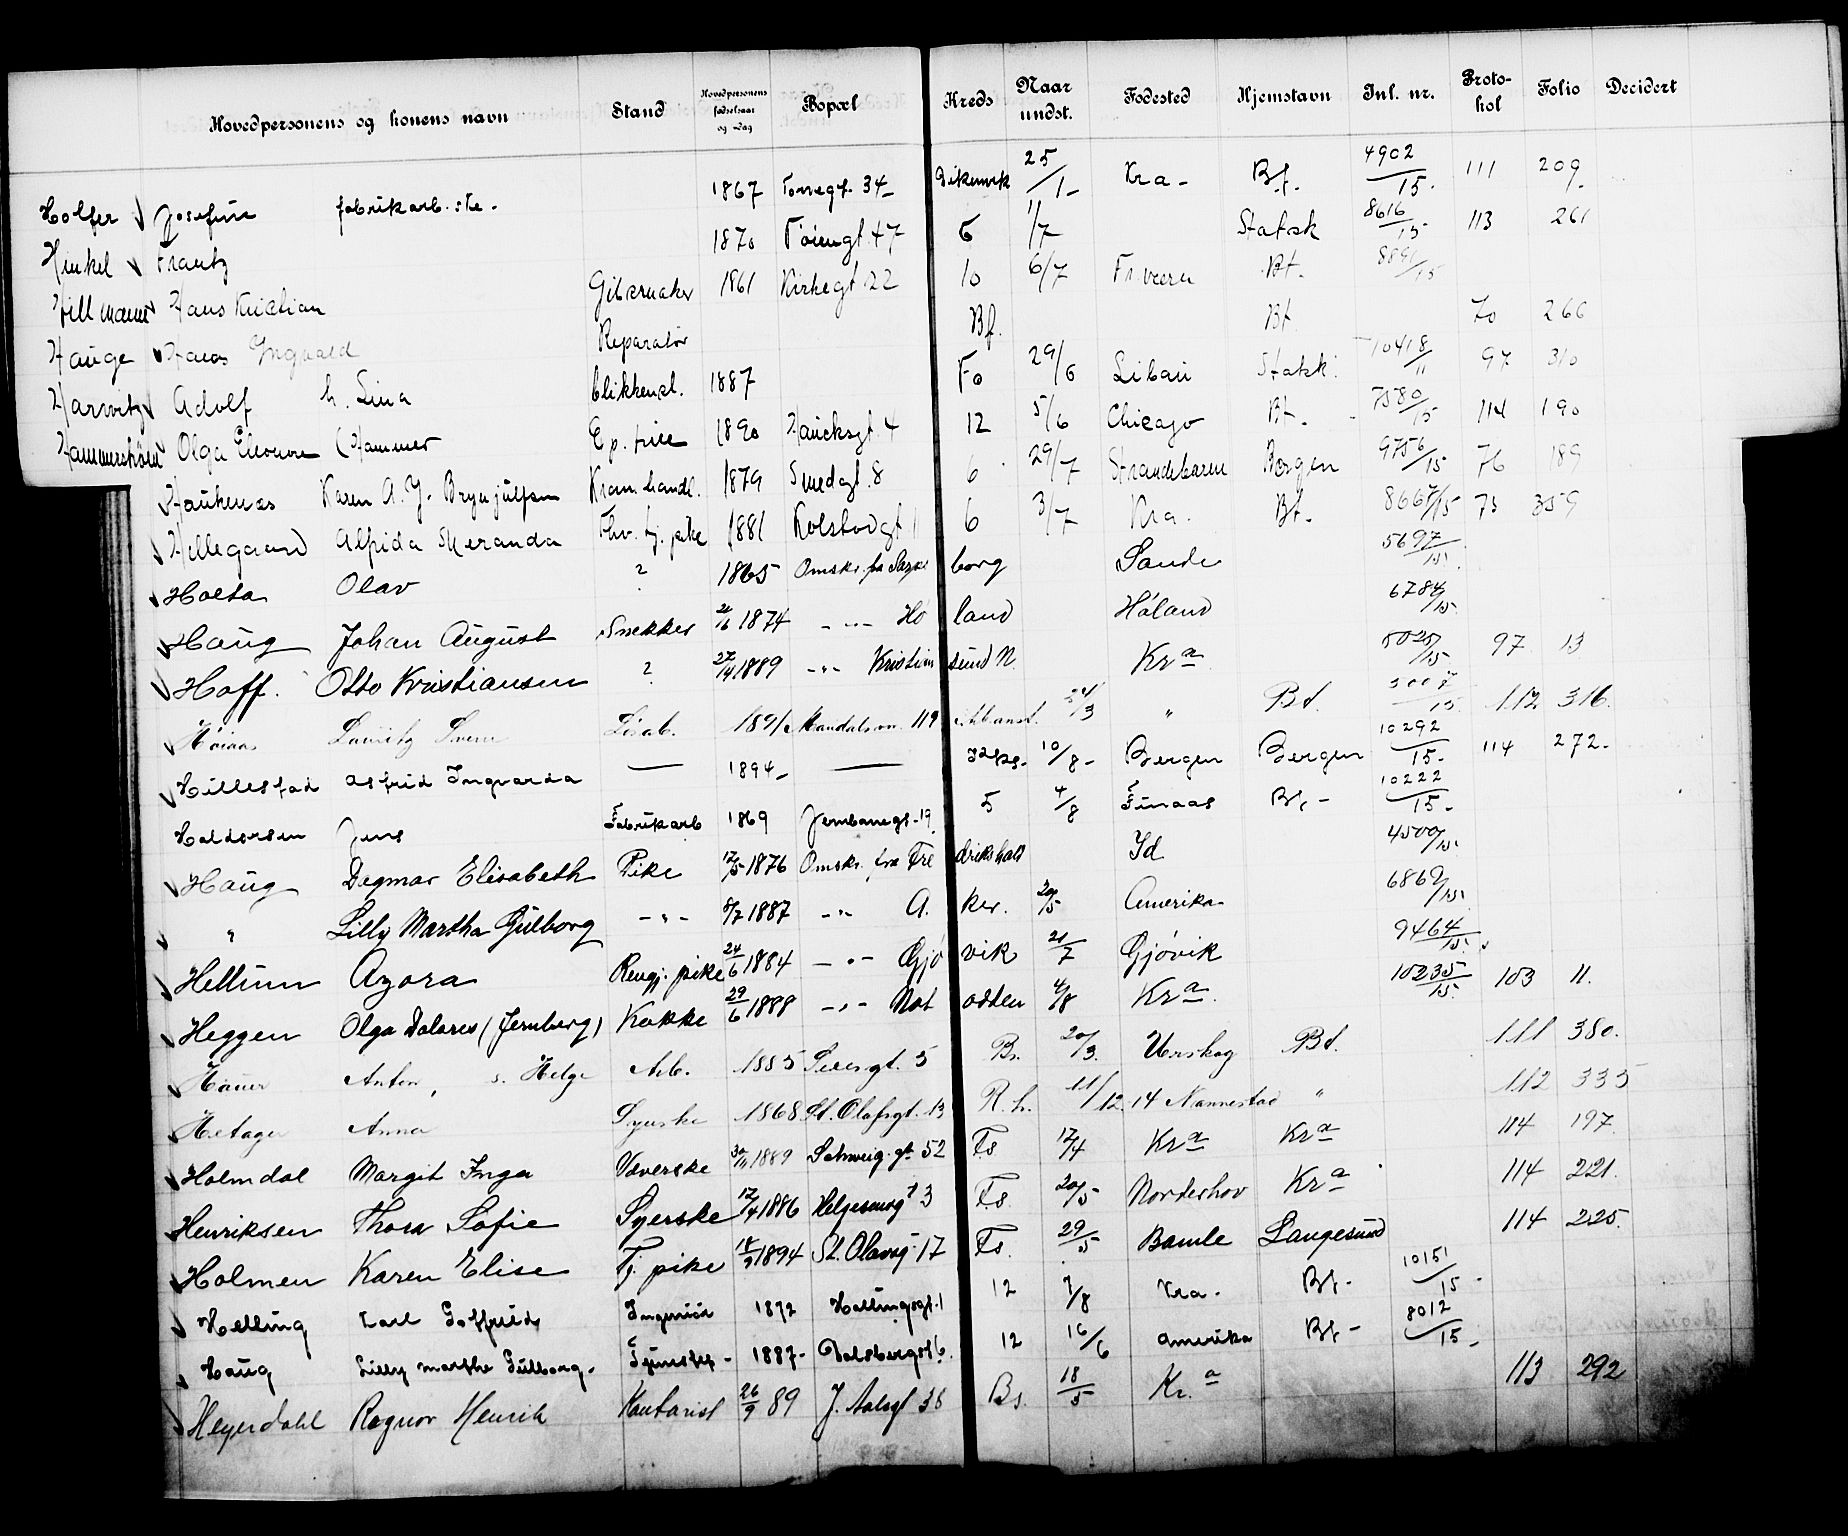 Hovedpersonens og konens navn Stand Hovedpersonens fødselsaar og -dag Bopæl Kreds Naar undst. Fødested Hjemstavn Inl. nr. Protokol Folio Decidert
Holfer Josefine fabrikarb.ske. 1867 34 25/1 Kra - Bf. 4902/15 111 209
Hinkel Frantz 1870 Tøiengt. 47 6 1/7 Statsk 8616/15 113 261
Hillmann Hans Kristian Gibsmaker 1861 Kirkegt 22 10 6/7 Bt. 8891/15
Hauge Hans Ingvald Reparatør Bf. Bt 70 266
Harvitz Adolf h. Lina blikkensl. 1887 Fo 29/6 Libau Statsk. 10418/11 97 310
Hammerstrøm Olga Eleonore (Hammer Ep. pike 1890 Haucksgt. 4 12 5/6 Chicago Bt. 7580/15 114 190
Haukenes Karen A. J. Brynjulfsen Kram.handl. 1879 Smedgt. 8 6 29/7 Strandebarm Bergen 9756/15 76 189
Hellegaard Alfida Meranda Fhv. tj. pike 1881 Kolstadgt 1 6 3/7 Kra. Bt. 8667/15 73 359
Holta Olav ? 1865 Omsk. fra Sarpsborg Sande 5697/15
Haug Johan August Snekker 21/6 1874 - " - Høland Høland 6784/15
Hoff. Otto Kristiansen ? 27/4 1889 - " - Kristiansund N. Kra 5025/15 97 13
Høiaas Lauritz Sverre Løsarb. 1891 Mandalsvn. 119 24/3 " Bt. 5007/15 112 316.
Hillestad Astrid Ingvarda — 1894 - — 10/8 - Bergen Bergen 10292/15 - 114 272.
Haldorsen Jens Fabrikarb 1869 Jernbanegt - 19 5 4/8 Finaas Bt. - 10222/15 -
Haug Dagmar Elisabeth Pike 17/5 1876 Omsk. fra Fredrikshald Id 4500/15
" Lilly Martha Gulborg - " - 8/7 1887 - " - Aker. 20/5 Amerika 6862/15
Hellum Azora Rengj. pike 24/6 1884 - " - Gjøvik 21/7 Gjøvik 9464/15
Heggen Olga Dolores (Jernberg) Kokke 29/6 1888 - " - Notodden 4/8 Kra. 10235/15 103 11.
Hauer Anton, s. Helge Arb. 1885 5 Bs. 20/3. Urskog Bt. 111 380.
Hetager Anna Syerske 1868 St. Olafsgt. 13 R. h. 11/12.14 Nannestad " 112 335
Holmdal Margit Inga Væverske 30/11 1889 Schweig. gt. 52 Fs 17/4 Kra Kra 114 197
Henriksen Thora Sofie Syerske 17/4 1886 Helgesensgt 3 Fs. 20/5 Norderhov Kra 114 221.
Holmen Karen Elise Tj. pike 18/9 1894 St. Olavsg. 17 Fs. 29/5 Bamle Langesund 114 225.
Helling Karl Gotfried Ingeniør 1872 Hallingsgt. 1 12 7/8 Kra. Bt - 10151/15 -
Haug Lilly Marthe Gulborg. Tjenestep - 1887 - Dalsbergst 6. 12 16/6 Amerika Bt - 8012/15 -
Heyerdahl Ragnar Henrik Kontorist 26/9 89 J. Aalsgt 38 Bs. 18/5 Kr.a 113 292